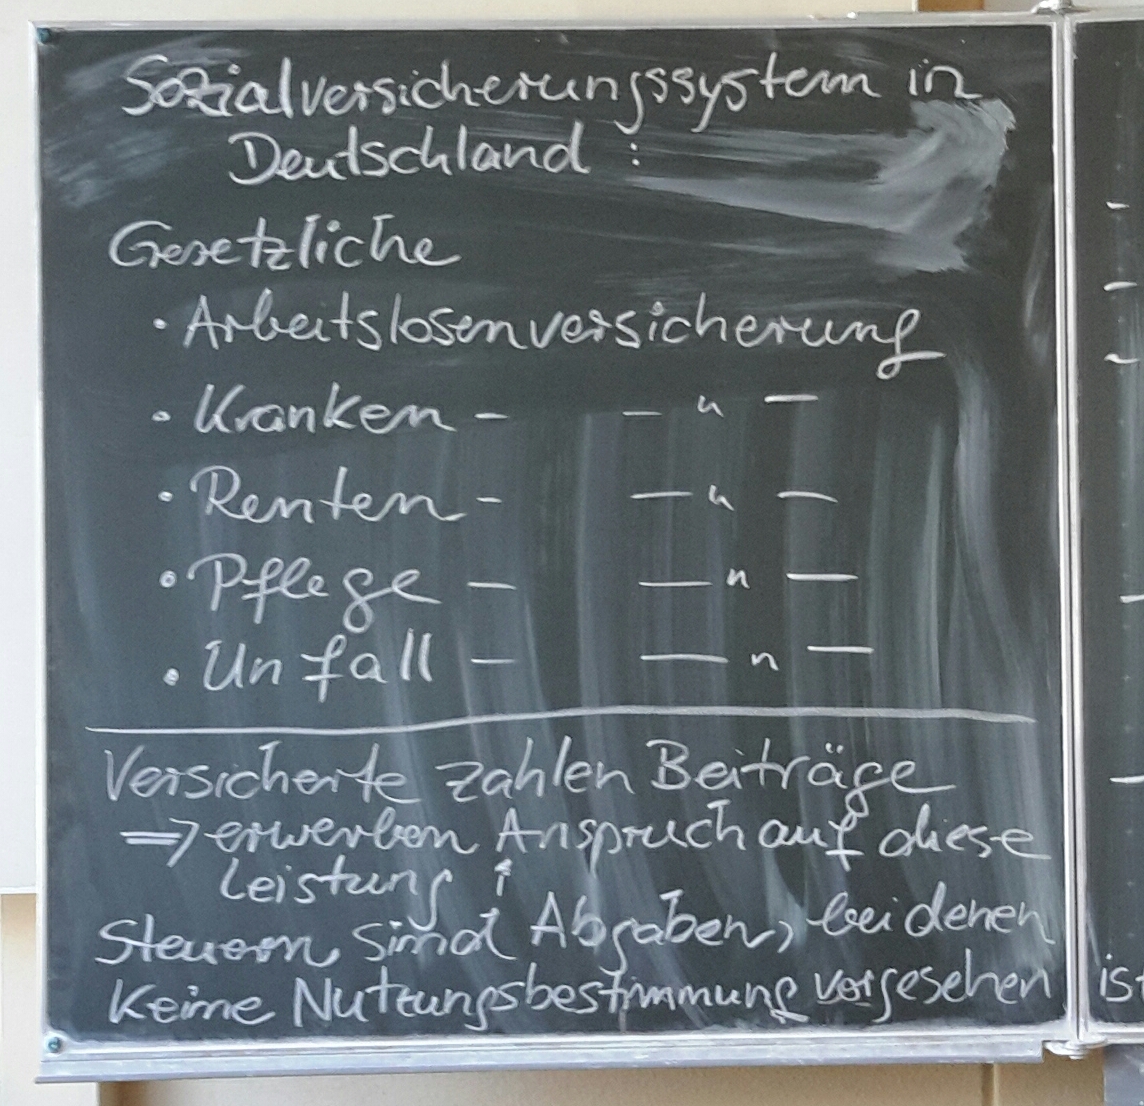 Sozialversicherungssystem in
Deutschland :
Gesetzliche
· Arbeitslosenversicherung
· Kranken - — " —
· Renten - — " —
· Pflege - — " —
· Unfall - — " —
Versicherte zahlen Beiträge
=> erwerben Anspruch auf diese
Leistung !
Steuern sind Abgaben, bei denen
keine Nutzungsbestimmung vorgesehen
ist